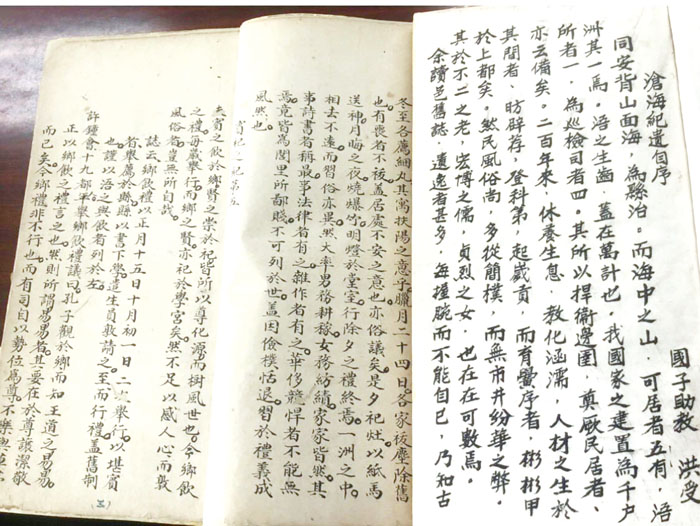 滄海紀遺自序
國子助教 洪受
同安背山面海，為縣治。而海中之山，可居者五有，浯
洲其一焉。浯之生齒，蓋在萬計也，我國家之建置為千戶
所者一，為巡檢司者四。其所以捍衛邊圉，奠厥民居者、
亦云備矣。二百年來，休養生息，教化涵濡，人材之生於
其間者、昉辟荐，登科第，起歲貢，而育黌序者，彬彬甲
於上都矣。然民風俗尚，多從簡樸，而無市井紛華之弊。
其於不二之老，宏博之儒，貞烈之女，也在在可數焉。
余讀邑舊誌，遺逸者甚多，每搤腕而不能自已，乃知古
冬至各薦細丸其寓扶陽之意乎臘月二十四日各家祓塵除舊
也有喪者不祓蓋居處不安之意也亦俗議矣是夕祀灶以紙馬
送神月晦之夜燒爆竹明燈於堂室行除夕之禮終焉一洲之中
相去不遠而習俗亦異然大率男務耕稼女務紡績家家皆然其
事詩書者稱最事法律者有之雜作者有之華侈競悍者不能無
焉竟皆為閭里所鄙賤不可列於世蓋因儉樸恬退習於禮義成
風然也
賓祀之紀第五
夫賓之飲於鄉賢之崇於祀皆所以導化源而樹風世也今鄉飲
之禮每歲舉行而鄉之賢亦祀於學宮矣然不足以感人心而敦
風俗者豈無所自哉
誌云鄉飲禮以正月十五日十月初一日二次舉行以堪賓
者舉薦於縣縣以書下學遣生員敦請之至而行禮蓋舊制
也謹以浯之與飲者列於左
許鍾會十九都平舉鄉飲禮議曰孔子觀於鄉而知王道之易易
正以鄉飲之禮言之也然則所謂易易者其要在於尊讓潔敬
而已矣今鄉禮非不行也而有司自以勢位為尊不樂與